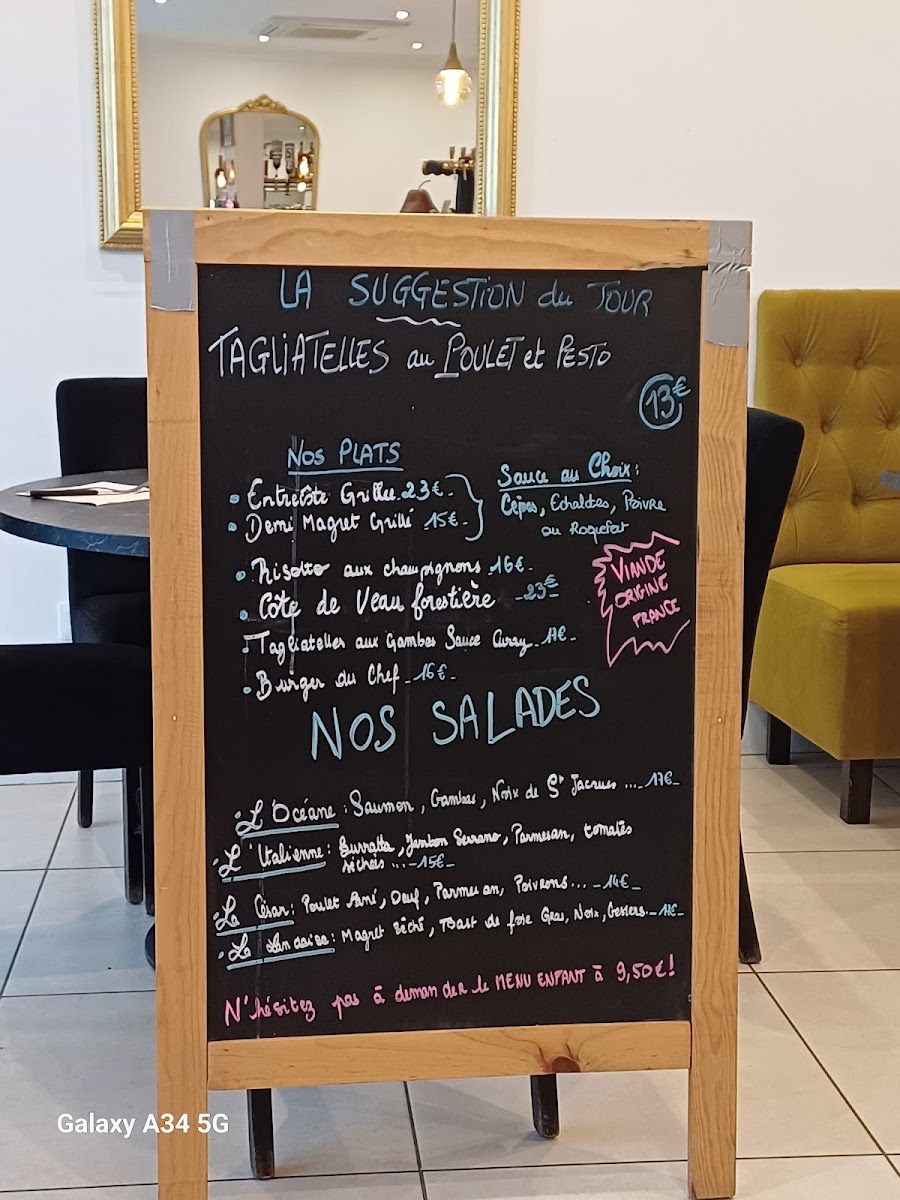 LA SUGGESTION du JOUR
TAGLIATELLES au POULET et PESTO
13€
NOS PLATS
Entrecôte Grillée 23€-
Demi Magret Grillé 15€-
Sauce au Choix:
Cèpes, Echalotes, Poivre
ou Roquefort
Risotto aux champignons -16€-
Côte de Veau forestière -23€-
-Tagliatelles aux Gambas Sauce Curry-17€-
Burger du Chef-16€-
VIANDE
ORIGINE
FRANCE
NOS SALADES
L'Océane: Saumon, Gambas, Noix de St Jacques ...-17€-
L'Italienne: Burratta, Jambon Serrano, Parmesan, tomates
séchées ...-15€-
La César: Poulet Pané, Oeuf, Parmesan, Poivrons... -14€-
La Landaise: Magret séché, Toast de foie Gras, Noix, Gesiers-17€-
N'hésitez pas à demander le MENU ENFANT à 9,50€!
Galaxy A34 5G